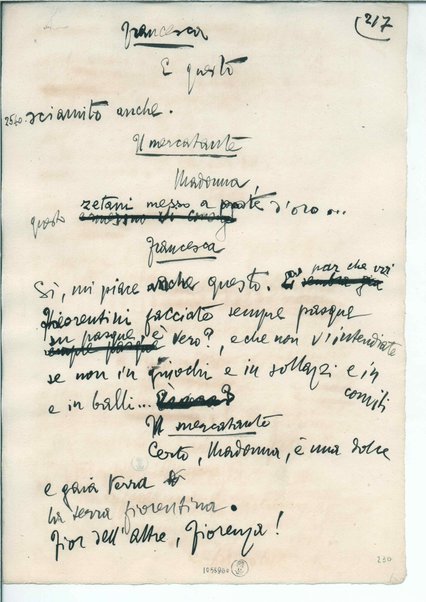 217
Francesca
E questo
2540 sciamito anche.
Il mercatante
Madonna,
questo zetani messo a poste d'oro...
Francesca
Sì, mi piace anche questo. E par che voi
Fiorentini facciate sempre pasque
è vero?, e che non v'intendiate
se non in giuochi e in sollazzi e in conviti
e in balli...
Il mercatante
Certo, Madonna, è una dolce
e gaia terra
la terra fiorentina.
Fior dell'altre, Fiorenza!
230